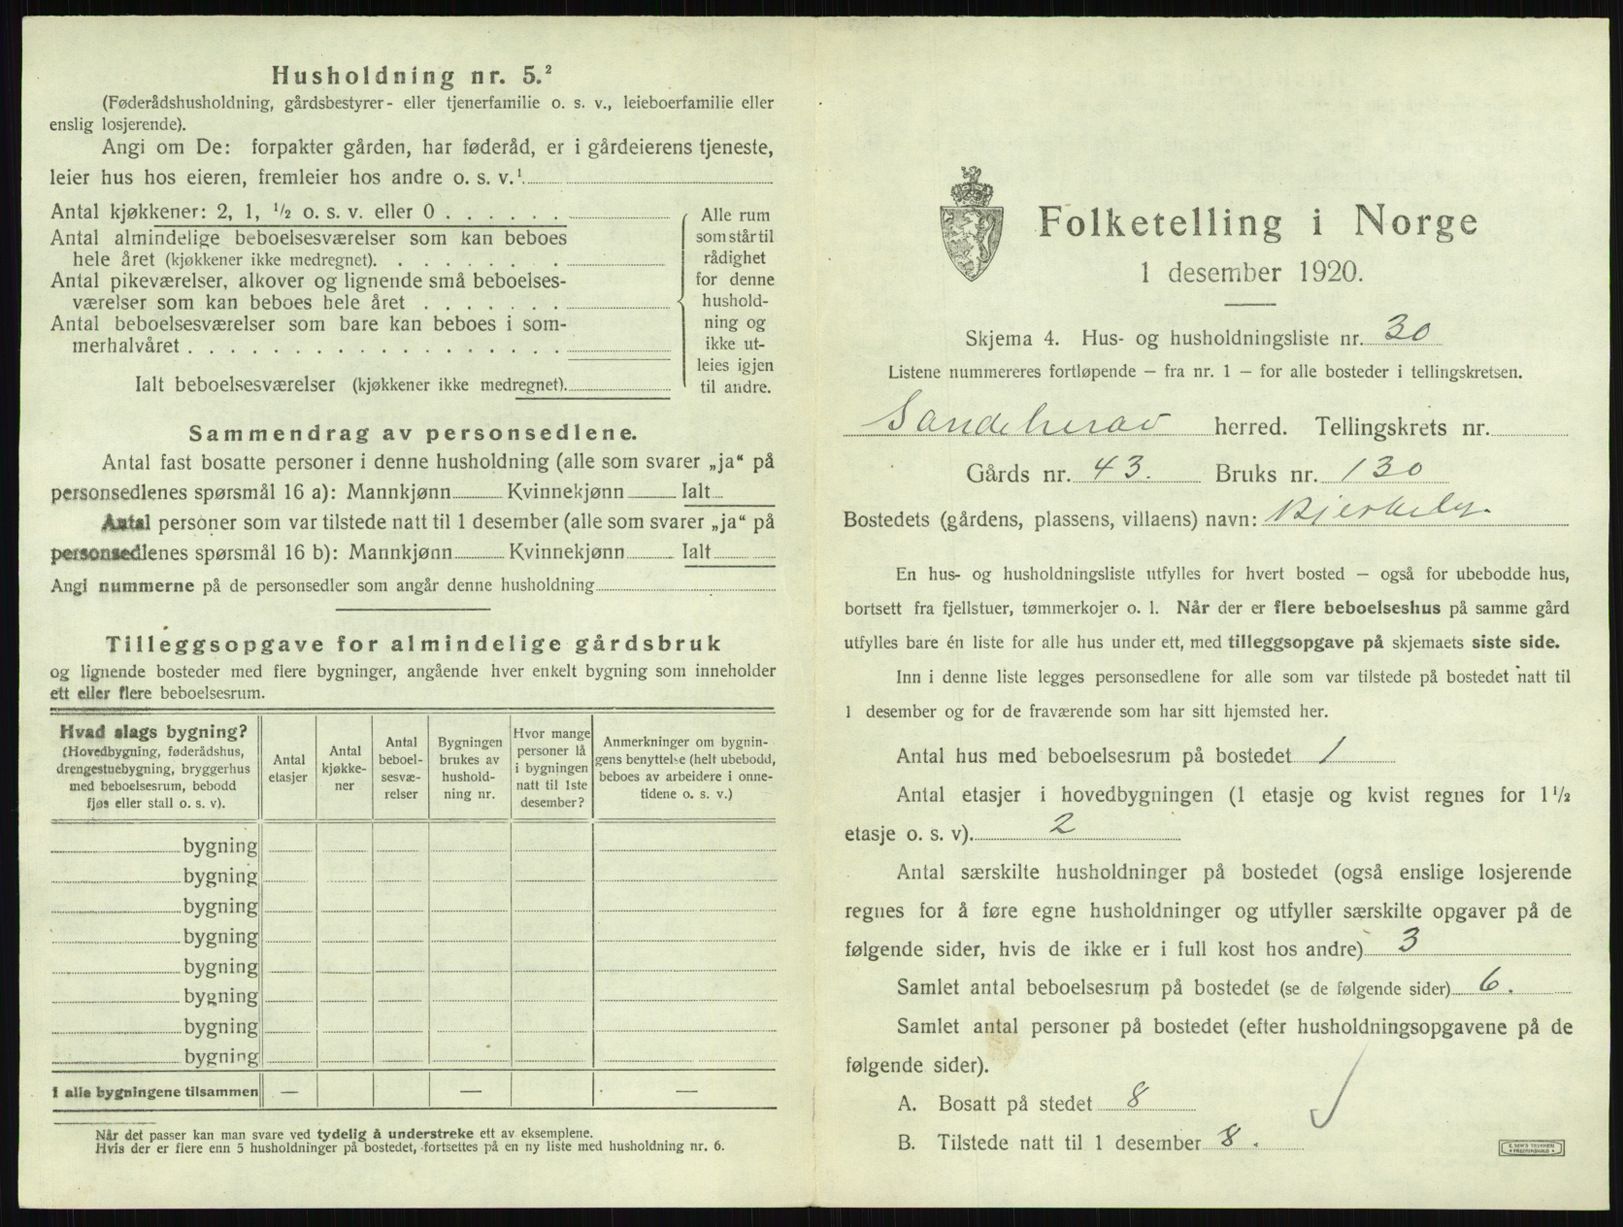 Husholdning nr. 5.²
(Føderådshusholdning, gårdsbestyrer- eller tjenerfamilie o. s. v., leieboerfamilie eller
enslig losjerende).
Angi om De: forpakter gården, har føderåd, er i gårdeierens tjeneste,
leier hus hos eieren, fremleier hos andre o. s. v.¹
Antal kjøkkener: 2, 1, ½ o. s. v. eller 0
Antal almindelige beboelsesværelser som kan beboes
hele året (kjøkkener ikke medregnet).
Antal pikeværelser, alkover og lignende små beboelses-
værelser som kan beboes hele året
Antal beboelsesværelser som bare kan beboes i som-
merhalvåret
Ialt beboelsesværelser (kjøkkener ikke medregnet).
Alle rum
som står til
rådighet
for denne
hushold-
ning og
ikke ut-
leies igjen
til andre.
Sammendrag av personsedlene.
Antal fast bosatte personer i denne husholdning (alle som svarer „ja“ på
personsedlenes spørsmål 16 a): Mannkjønn Kvinnekjønn Ialt
Antal personer som var tilstede natt til 1 desember (alle som svarer „ja“ på
personsedlenes spørsmål 16 b): Mannkjønn Kvinnekjønn Ialt
Angi nummerne på de personsedler som angår denne husholdning
Tilleggsopgave for almindelige gårdsbruk
og lignende bosteder med flere bygninger, angående hver enkelt bygning som inneholder
ett eller flere beboelsesrum.
Hvad slags bygning?
(Hovedbygning, føderådshus,
drengestuebygning, bryggerhus
med beboelsesrum, bebodd
fjøs eller stall o. s. v).
Antal
etasjer
Antal
kjøkke-
ner
Antal
beboel-
sesvæ-
relser
Bygningen
brukes av
hushold-
ning nr.
Hvor mange
personer lå
i bygningen
natt til 1ste
desember?
Anmerkninger om bygnin-
gens benyttelse (helt ubebodd,
beboes av arbeidere i onne-
tidene o. s. v.)
bygning
bygning
bygning
bygning
bygning
bygning
bygning
bygning
I alle bygningene tilsammen — — —
Når det passer kan man svare ved tydelig å understreke ett av eksemplene.
Hvis der er flere enn 5 husholdninger på bostedet, fortsettes på en ny liste med husholdning nr. 6.
Folketelling i Norge
1 desember 1920.
Skjema 4. Hus- og husholdningsliste nr. 30
Listene nummereres fortløpende — fra nr. 1 — for alle bosteder i tellingskretsen.
Sandeherav herred. Tellingskrets nr.
Gårds nr. 43. Bruks nr. 130
Bostedets (gårdens, plassens, villaens) navn: Bjerkeby.
En hus- og husholdningsliste utfylles for hvert bosted — også for ubebodde hus,
bortsett fra fjellstuer, tømmerkojer o. l. Når der er flere beboelseshus på samme gård
utfylles bare én liste for alle hus under ett, med tilleggsopgave på skjemaets siste side.
Inn i denne liste legges personsedlene for alle som var tilstede på bostedet natt til
1 desember og for de fraværende som har sitt hjemsted her.
Antal hus med beboelsesrum på bostedet 1
Antal etasjer i hovedbygningen (1 etasje og kvist regnes for 1½
etasje o. s. v). 2
Antal særskilte husholdninger på bostedet (også enslige losjerende
regnes for å føre egne husholdninger og utfyller særskilte opgaver på de
følgende sider, hvis de ikke er i full kost hos andre) 3
Samlet antal beboelsesrum på bostedet (se de følgende sider) 6.
Samlet antal personer på bostedet (efter husholdningsopgavene på de
følgende sider).
A. Bosatt på stedet 8
B. Tilstede natt til 1 desember 8.